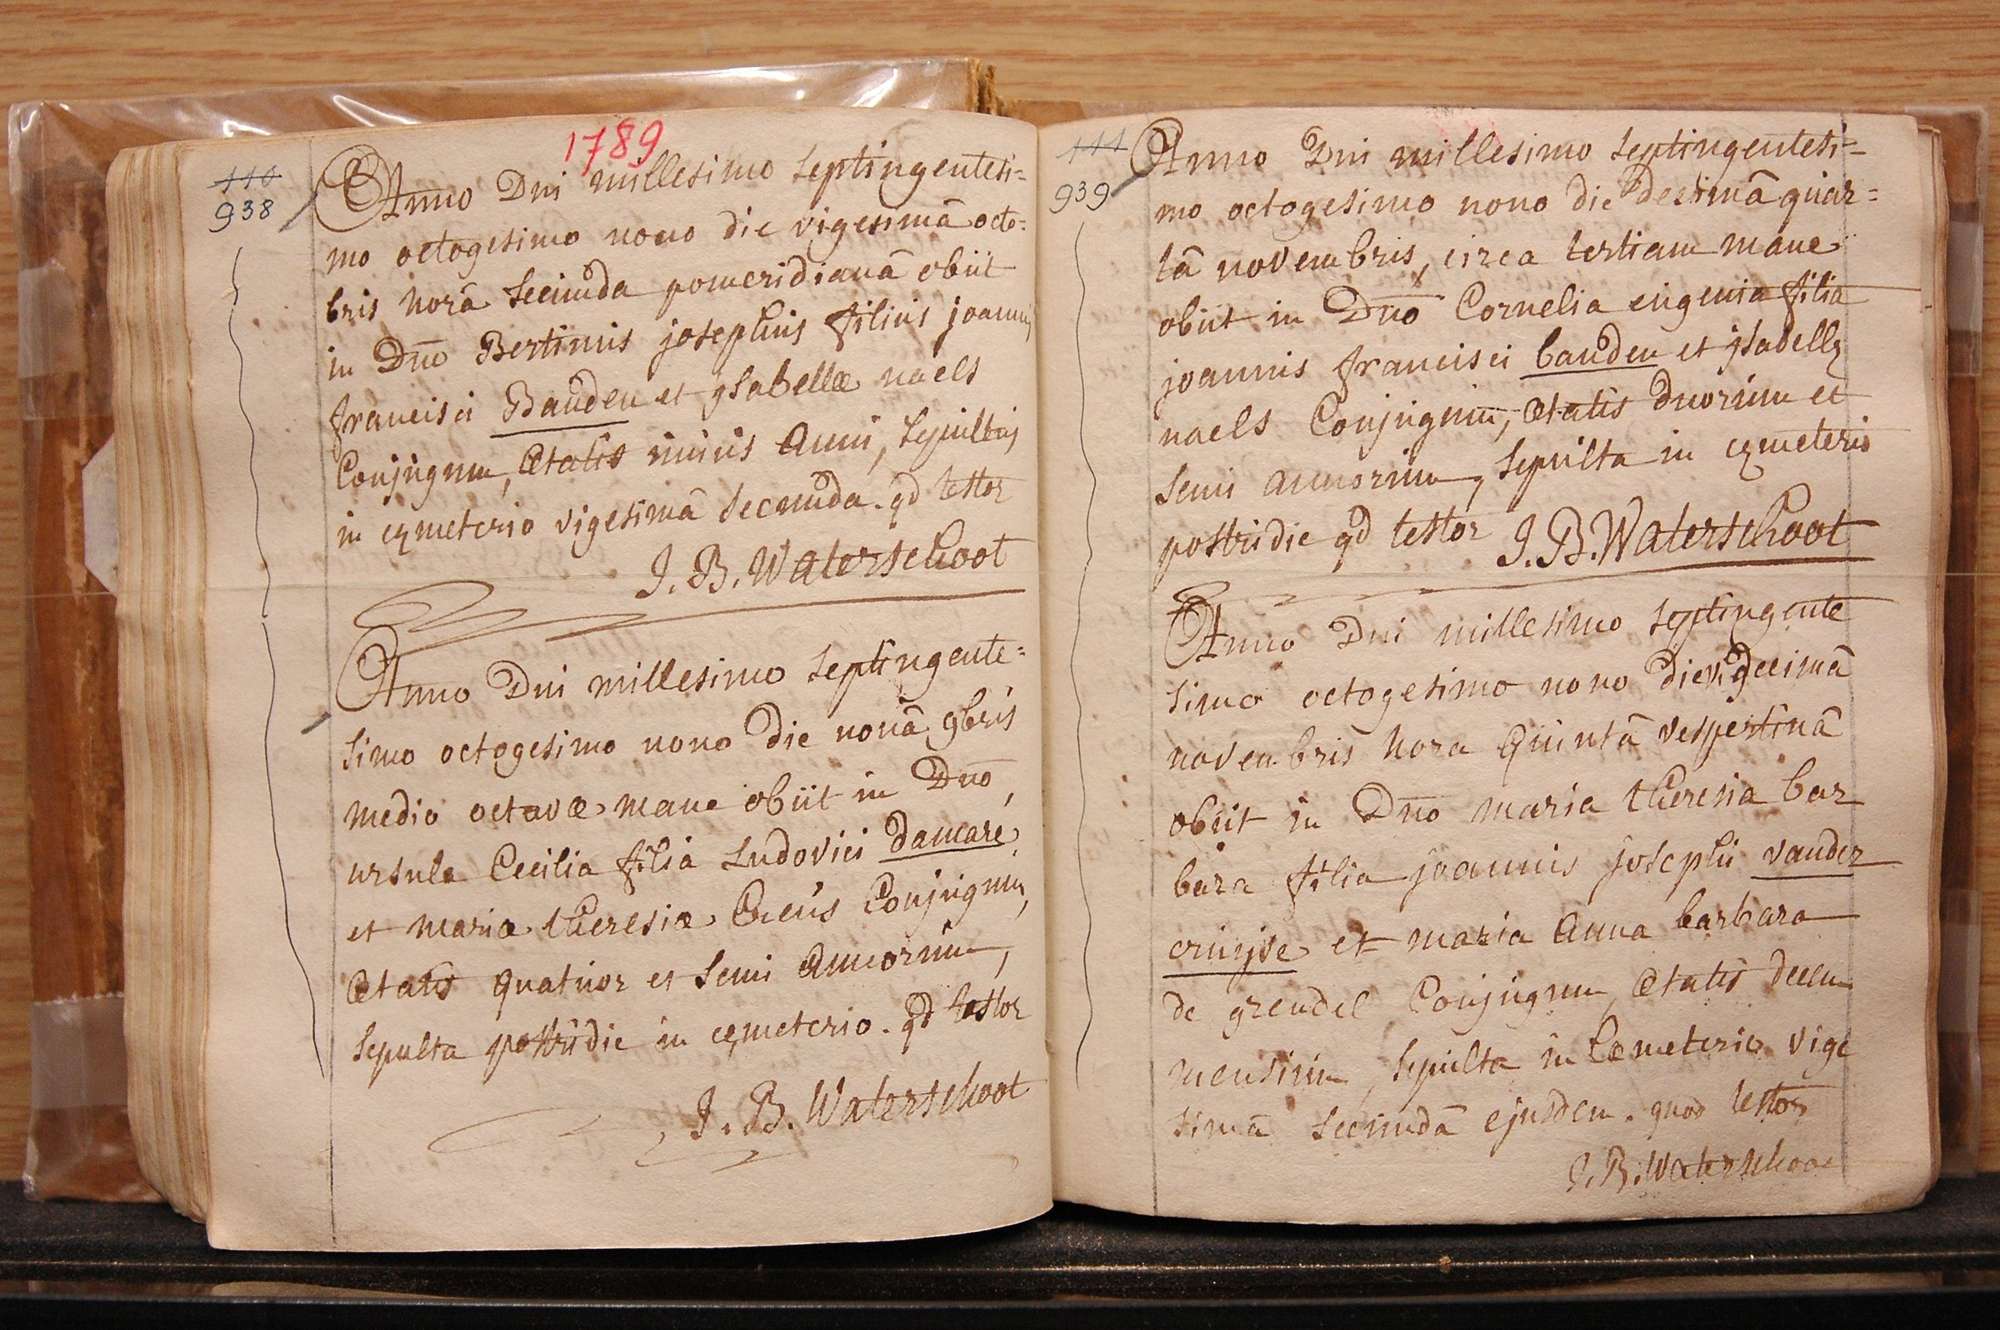 1789
110
938
Anno Dni millesimo septingentesi=
mo octogesimo nono die vigesimâ octo=
bris horâ secunda pomeridianâ obiit
in Dno Bertinus josephus filius joannis
francisci Bauden et ysabellæ naels
Conjugum, Ætatis unius Anni, sepultus
in cymeterio vigesimâ secunda. qd testor
J. B. Waterschoot
Anno Dni millesimo septingente=
simo octogesimo nono die nonâ 9bris
medio octavæ mane obiit in Dno,
ursula Cecilia filia Ludovici damare
et mariæ theresiæ Conjugum,
Ætatis quatuor et semi Annorum,
sepulta postridie in cymeterio. qd testor
J. B. Waterschoot
111
939
Anno Dni millesimo septingentesi=
mo octogesimo nono die decimâ quar=
tâ novembris, circa tertiam mane
obiit in Dno Cornelia eugenia filia
joannis francisci bauden et ysabellę
naels Conjugum, Ætatis duorum et
semi annorum, sepulta in cymeterio
postridie qd testor J. B. Waterschoot
Anno Dni millesimo septingente
simo octogesimo nono die
novembris hora quintâ vespertinâ
obiit in Dno maria theresia bar
bara filia joannis josephi vander
cruijse et maria Anna barbara
de grendel Conjugum, Ætatis decem
mensium, sepulta in Cœmeterio vige
simâ secundâ ejusdem. quod testor
J. B. Waterschoot